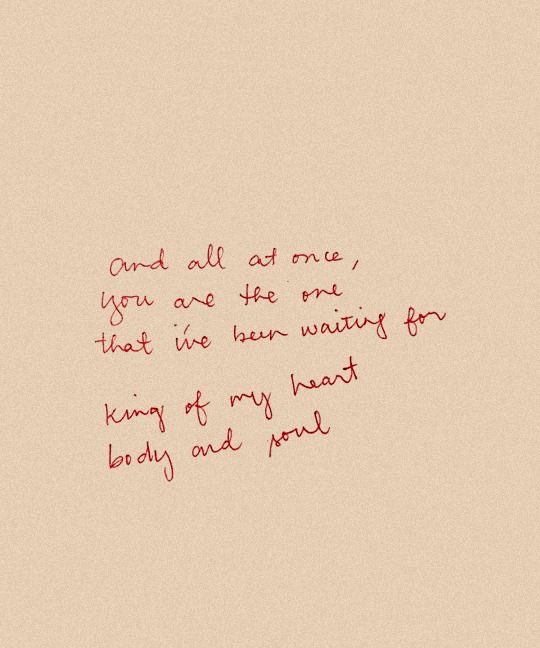 and all at once,
you are the one
that i've been waiting for
king of my heart
body and soul